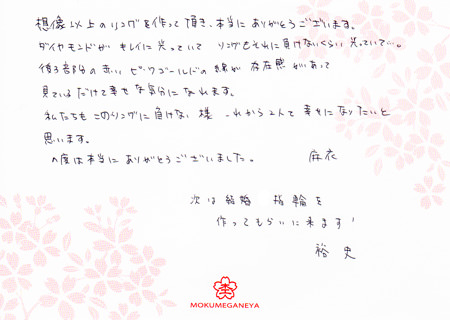 想像以上のリングを作って頂き、本当にありがとうございます。
ダイヤモンドがキレイに光っていて リングもそれに負けないくらい光っていて…。
後ろ部分の赤い ピンクゴールドの線が 存在感があって
見ているだけで幸せな気分になれます。
私たちも このリングに負けない様 これから2人で 幸せになりたいと
思います。
今度は本当に ありがとうございました。
麻衣
次は結婚指輪を
作ってもらいに来ます!
裕史
MOKUMEGANEYA